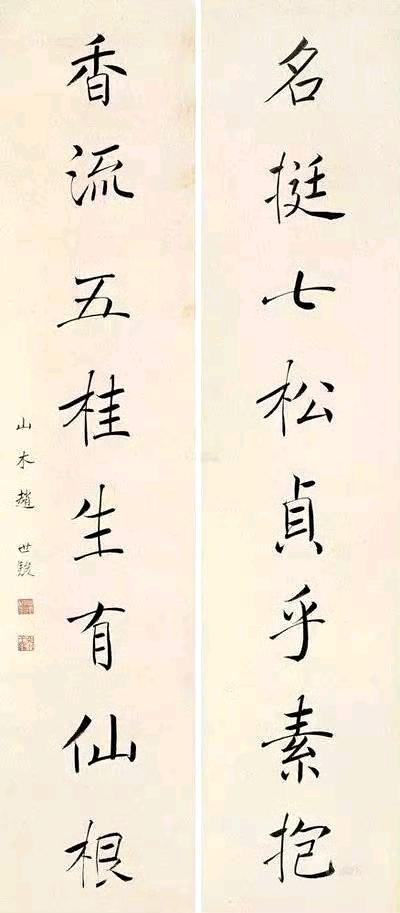 名挺七松貞乎素抱
香流五桂生有仙根
山木趙世駿